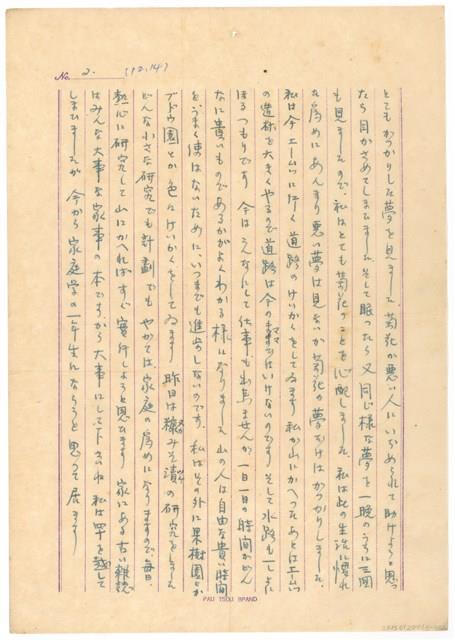 No. 2. (12.14)
とてもがっかりした夢を見ました 菊花が悪い人にいぢめられて助けようと思っ
たら目がさめてしまひました そして眠ったら又同じ様な夢を一晩のうちに三回
も見ましたので、私はとても菊花のことを心配しました 私は此の生活に慣れ
た為めにあんまり悪い夢は見ないが菊花の夢だけはがっかりしました。
私は今エームツに行く道路のけいかくをしてゐます 私が山にかへったあとはエームツ
の造林を大きくやるので道路は今のまゝではいけないのです そして水路も一しょに
ママ
ほるつもりです 今はこんなにして仕事も出来ませんが一日一日の時間がどん
なに貴いものであるかがよくわかる様になりました 山の人は自由な貴い時間
をうまく使はないために、いつまでも進歩しないのです。私はその外に果樹園とか
ブドウ園とか色々けいかくをしてゐます 昨日は糠みそ漬の研究をしました
どんな小さな研究でも計劃でもやがては、家庭の為めになりますので毎日、
熱心に研究して山にかへればすぐ実行しようと思ひます 家にある古い雑誌
はみんな大事な家事の本ですから大事にして下さいね 私は四十を越して
しまひましたが 今から家庭学の一年生にならうと思って居ます
PAU TSOU BRAND